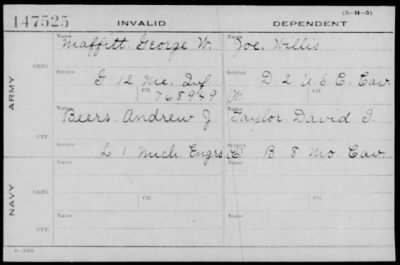 147525 INVALID DEPENDENT (3-H-5)
Name Name
Maffitt, George W. Joe. Willis
ARMY ORIG. Service Service
G 12 Me. Inf D 2 U S C. Cav
Ctf. Ctf.
768949 W
Name Name
Beers. Andrew J. Taylor, David
CTF. Service Service
L 1 Mich. Engrs C B 8 Mo. Cav
NAVY Name Name
ORIG. Service Ctf. Service Ctf.
Name Name
CTF. Service Ctf. Service Ctf.